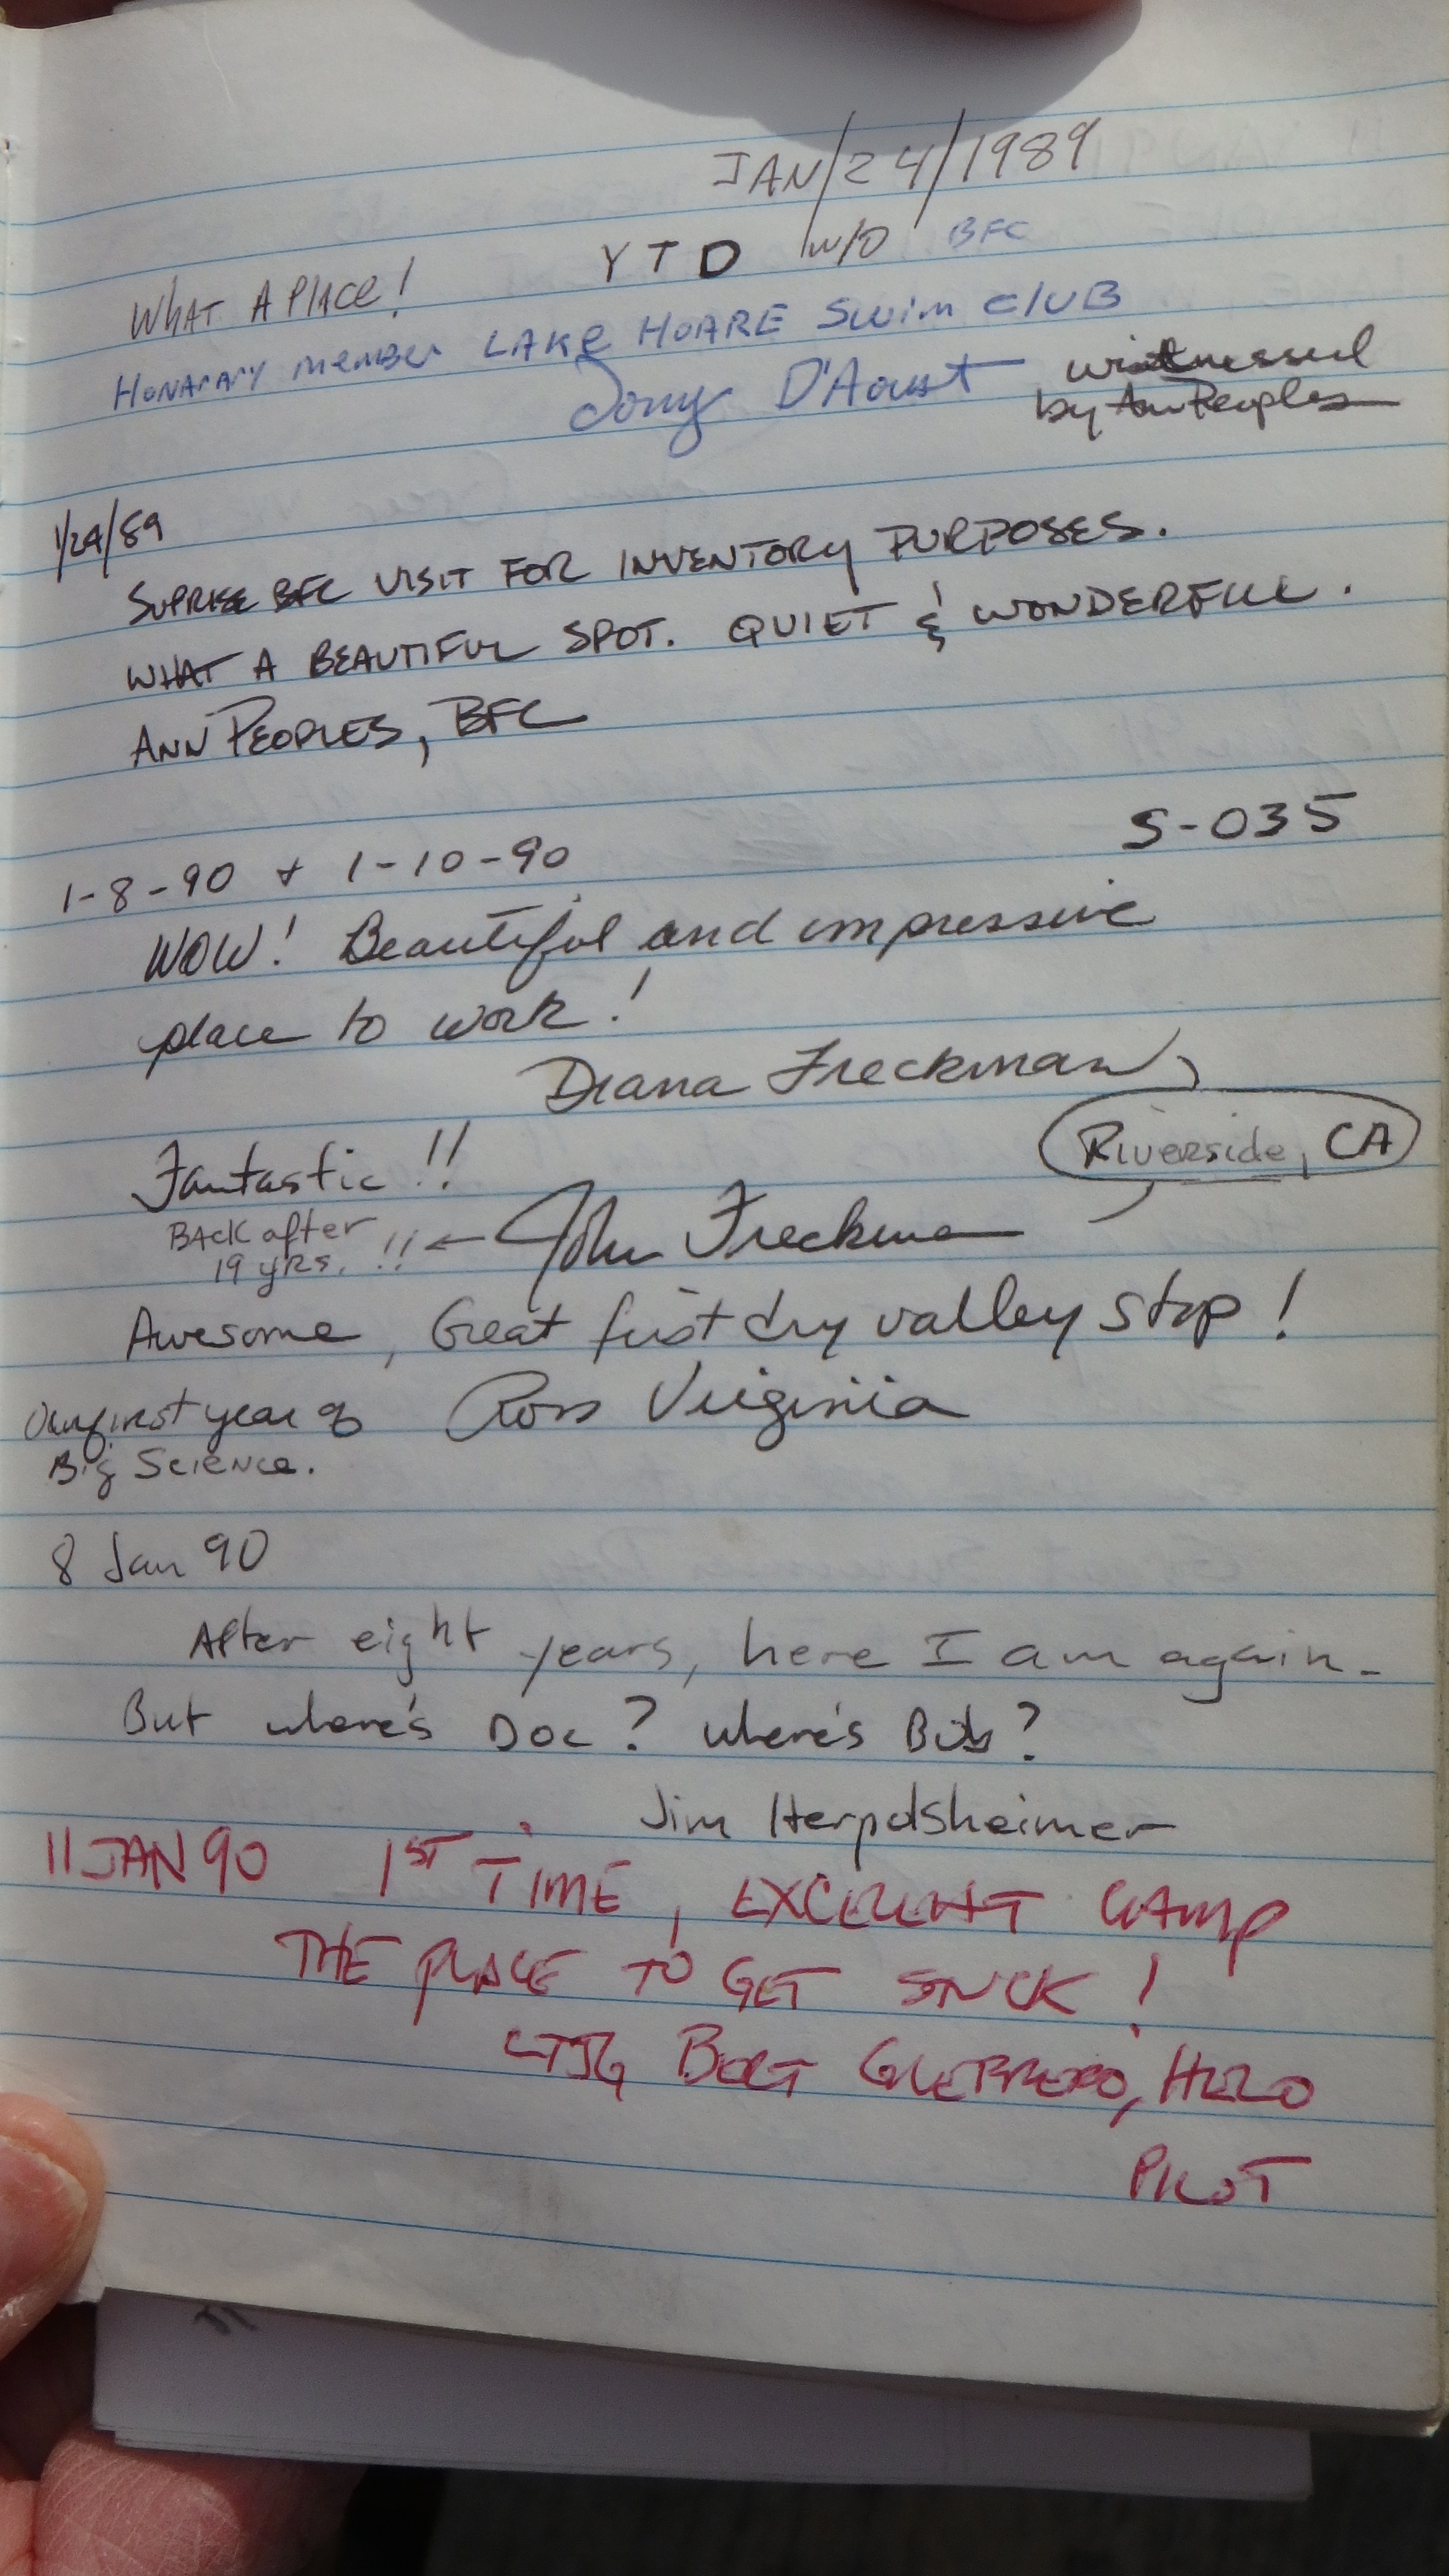 JAN/24/1989
YTD w/o BFC
WHAT A PLACE!
HONARARY MEMBER LAKE HOARE SWIM CLUB
Tony D'Aoust witnessed
by Ann Peoples
1/24/89
SUPRISE BFC VISIT FOR INVENTORY PURPOSES.
WHAT A BEAUTIFUL SPOT. QUIET & WONDERFULL.
ANN PEOPLES, BFC
S-035
1-8-90 + 1-10-90
WOW! Beautiful and impressive
place to work!
Diana Freckman,
Riverside, CA
Fantastic!!
BACK after
19 yRs. !! ← John Freckman
Awesome, Great first dry valley stop!
Our first year of Ross Virginia
Big Science.
8 Jan 90
After eight years, here I am again.
But where's Doc? Where's Bob?
Jim Herpolsheimer
11 JAN 90 1ST TIME, EXCELLENT CAMP
THE PLACE TO GET STUCK!
LTJG GUERRERO, HELO
PILOT